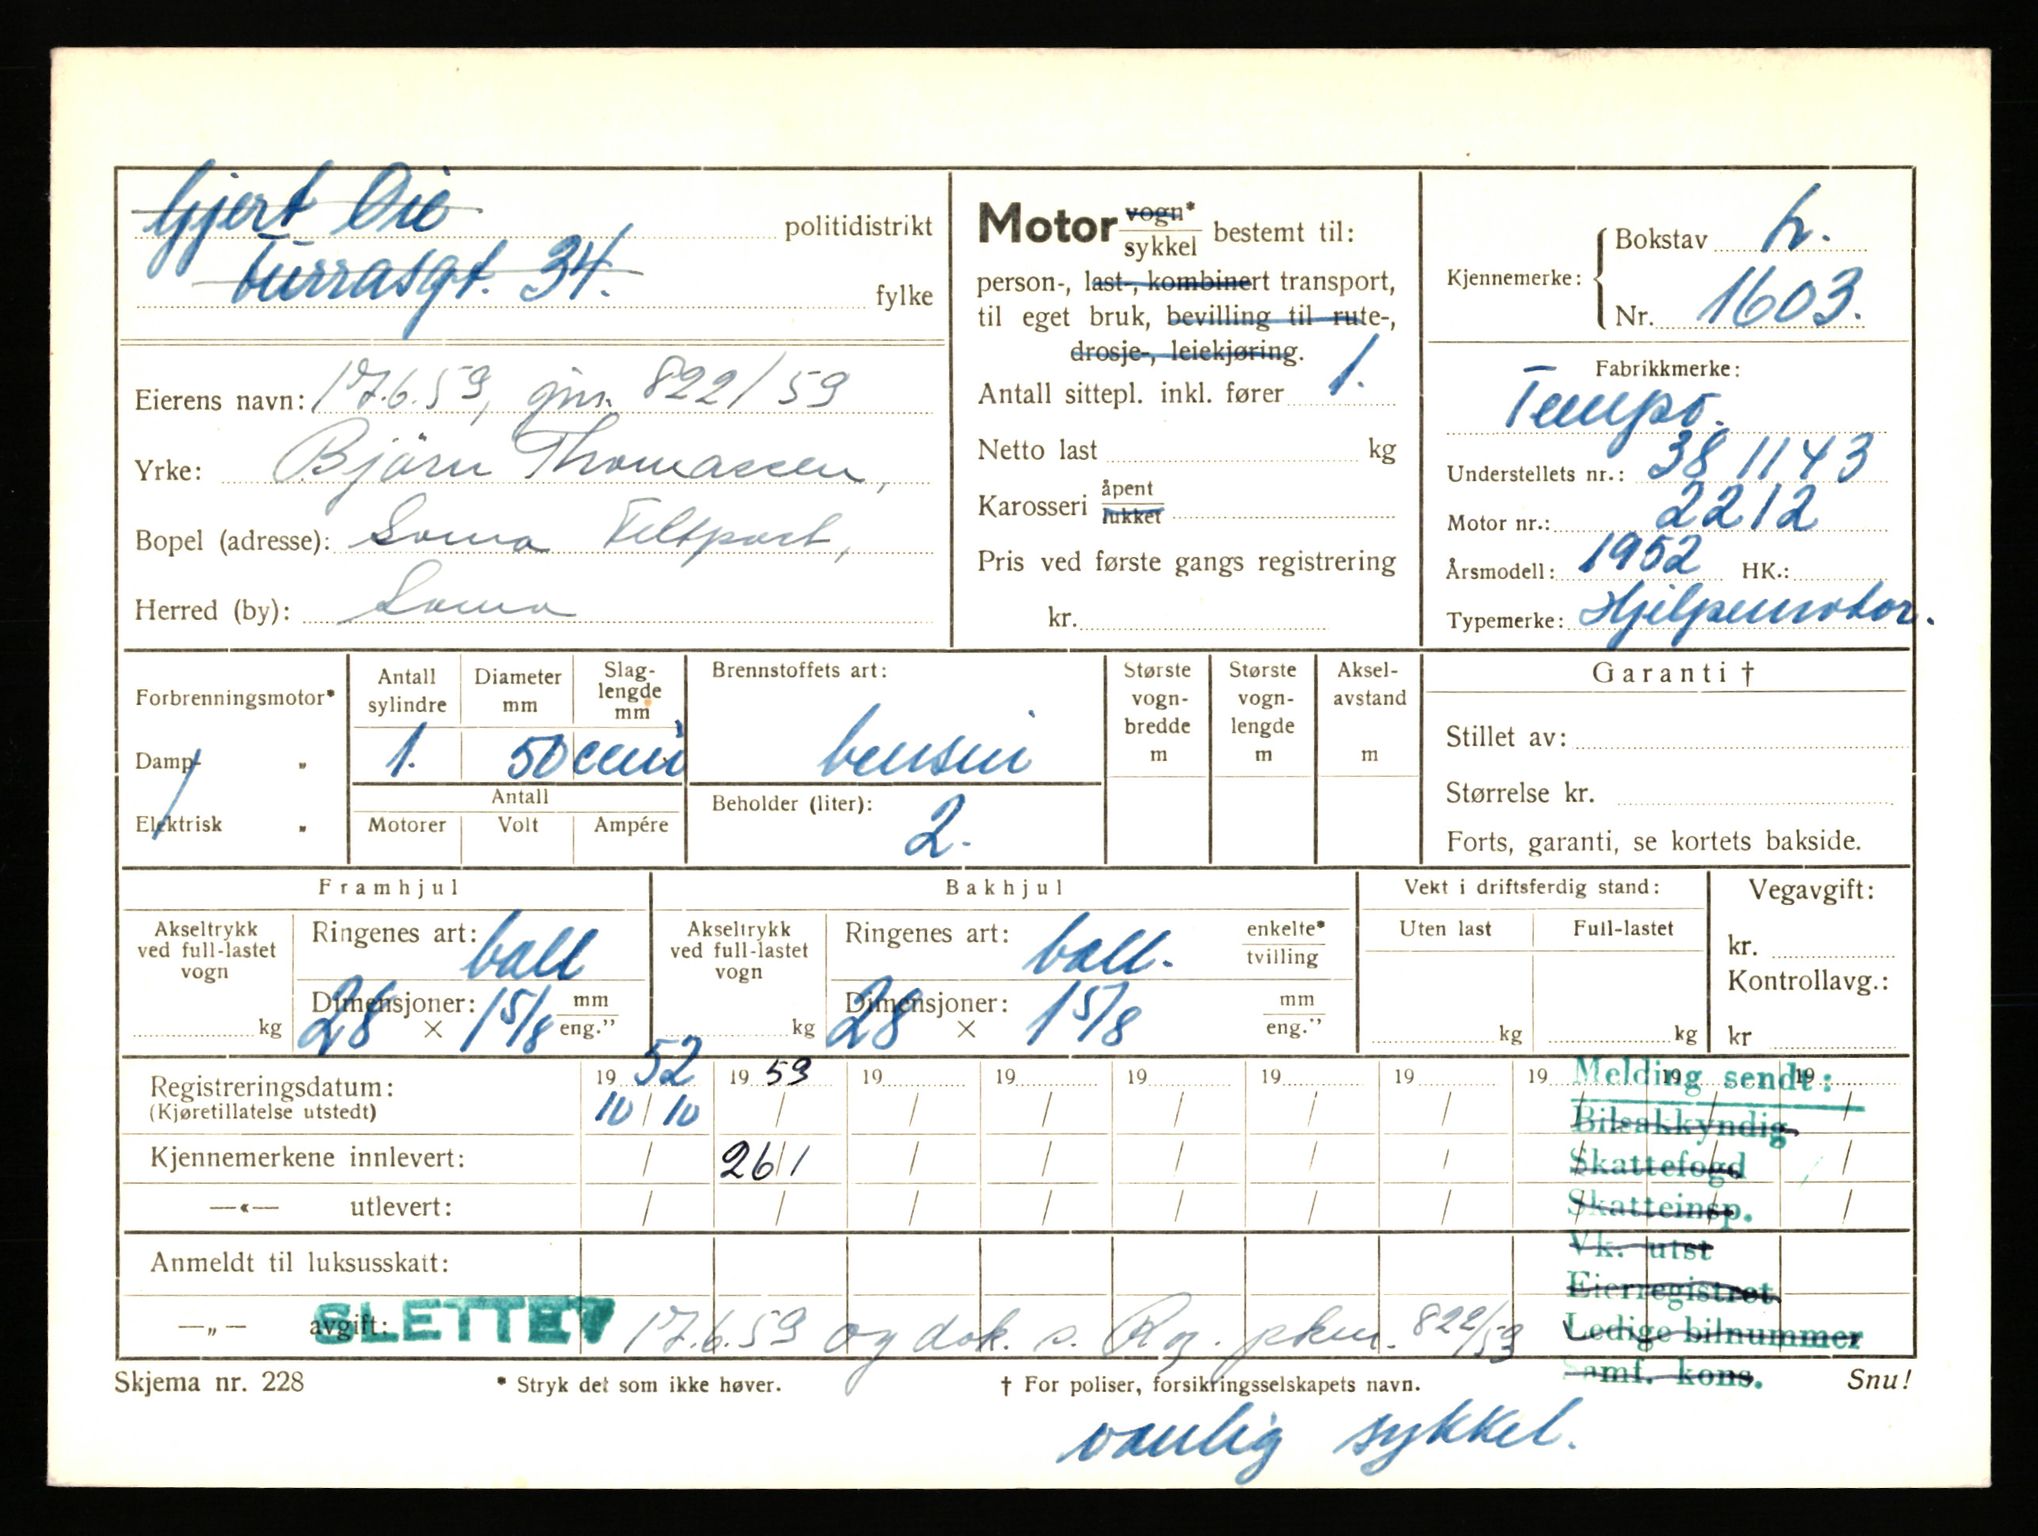 Gjert Oie politidistrikt
Turrasgt. 34. fylke
Eierens navn: 17.6.59, gjn. 822/59
Yrke: Bjørn Thomassen,
Bopel (adresse): Soma Feltpost,
Herred (by): Soma
Motor vogn* / sykkel bestemt til:
person-, last-, kombinert transport,
til eget bruk, bevilling til rute-,
drosje-, leiekjøring.
Antall sittepl. inkl. fører 1.
Netto last kg
Karosseri åpent / lukket
Pris ved første gangs registrering
kr.
Kjennemerke: Bokstav L.
Nr. 1603.
Fabrikkmerke:
Tempo.
Understellets nr.: 381143
Motor nr.: 2212
Årsmodell: 1952 HK.:
Typemerke: Hjelpemotor.
Forbrenningsmotor*
Damp- „
Elektrisk „
Antall sylindre
Diameter mm
Slag-lengde mm
1. 50 ccm
Antall
Motorer Volt Ampére
Brennstoffets art:
bensin
Beholder (liter):
2.
Største vogn-bredde m
Største vogn-lengde m
Aksel-avstand m
Garanti †
Stillet av:
Størrelse kr.
Forts, garanti, se kortets bakside.
Framhjul
Akseltrykk ved full-lastet vogn
kg
Ringenes art: ball
Dimensjoner: mm
28 × 1 5/8 eng."
Bakhjul
Akseltrykk ved full-lastet vogn
kg
Ringenes art: ball. enkelte* / tvilling
Dimensjoner: mm
28 × 1 5/8 eng."
Vekt i driftsferdig stand:
Uten last Full-lastet
kg kg
Vegavgift:
kr.
Kontrollavg.:
kr
Registreringsdatum: 19 52 19 59 19 19 19 19 19 19 19 19
(Kjøretillatelse utstedt) 10/10 / / / / / / / / /
Kjennemerkene innlevert: / 26/1 / / / / / / / /
—«— utlevert: / / / / / / / / / /
Anmeldt til luksusskatt:
—„— avgift: SLETTET 17.6.59 og dok. s. Rog. pkm. 822/59
Melding sendt:
Bilsakkyndig
Skattefogd
Skatteinsp.
Vk. utst
Eierregistret
Ledige bilnummer
Samf. kons.
Skjema nr. 228 * Stryk det som ikke høver. † For poliser, forsikringsselskapets navn. Snu!
vanlig sykkel.